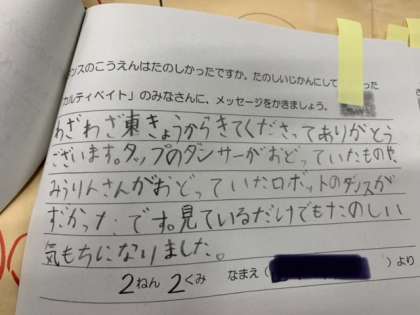 ンスのこうえんはたのしかったですか。たのしいじかんにして った
カルティベイト」のみなさんに、メッセージをかきましょう。
わざわざ東きょうからきてくださってありがとう
ございます。タップのダンサーがおどっていたものや、
みうりんさんがおどっていたロボットのダンスが
すごかったです。見ているだけでもたのしい
気もちになりました。
2ねん 2くみ なまえ( )より